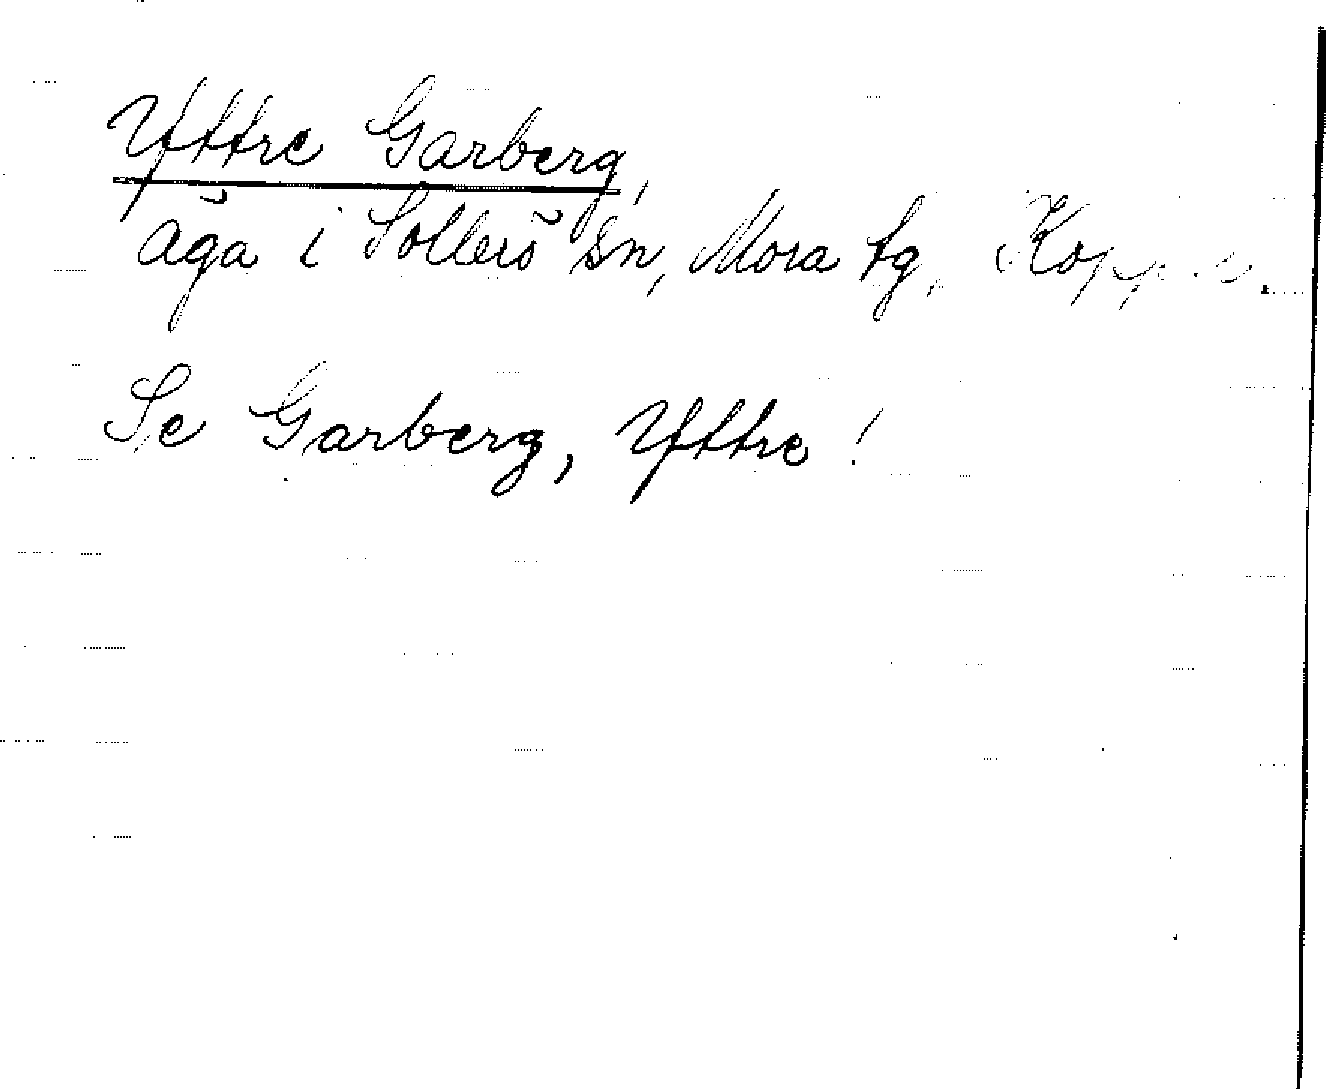 Yttre Garberg,
äga i Sollerö sn, Mora tg,
Se Garberg, Yttre!